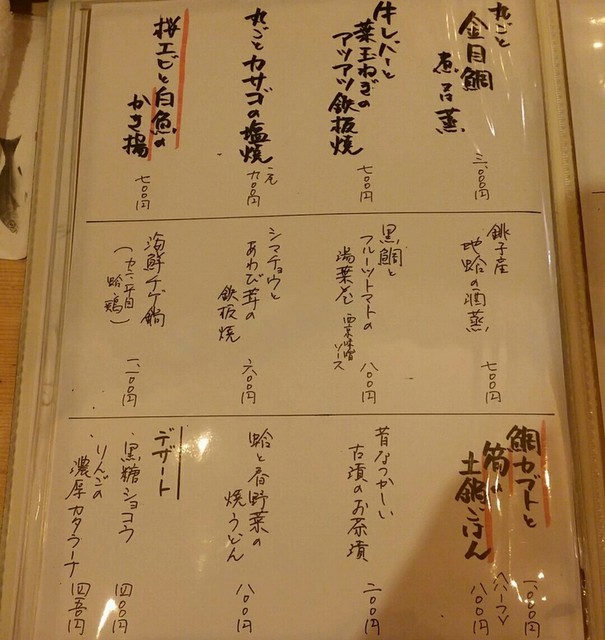 丸ごと
金目鯛
煮 or 蒸
三、〇〇〇円
牛レバーと
葉玉ねぎの
アツアツ鉄板焼
七〇〇円
丸ごとカサゴの塩焼
九〇〇円
桜エビと白魚の
かき揚
七〇〇円
銚子産
地蛤の酒蒸
七〇〇円
黒鯛と
フルーツトマトの
湯葉巻
西京味噌
ソース
八〇〇円
シマチョウと
あわび茸の
鉄板焼
六〇〇円
海鮮チゲ鍋
蛤、鶏)
一、一〇〇円
鯛カブトと
筍の
土鍋ごはん
一、〇〇〇円
ハーフ
八〇〇円
昔なつかしい
古漬のお茶漬
二〇〇円
蛤と春野菜の
焼うどん
八〇〇円
デザート
、黒糖ショコラ
四〇〇円
、りんごの
濃厚カタラーナ
四五〇円